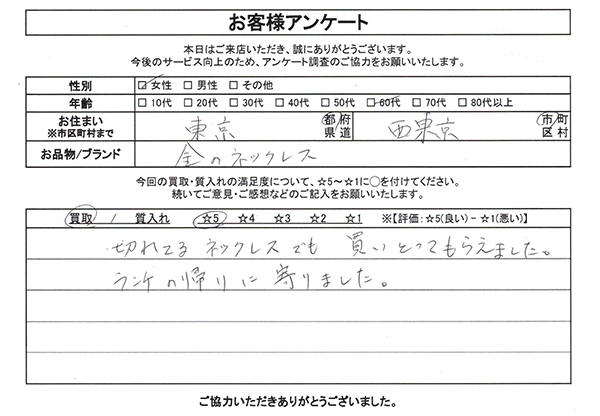 お客様アンケート
本日はご来店いただき、誠にありがとうございます。
今後のサービス向上のため、アンケート調査のご協力をお願いいたします。
性別 ☑ 女性 □ 男性 □ その他
年齢 □ 10代 □ 20代 □ 30代 □ 40代 □ 50代 ☑ 60代 □ 70代 □ 80代以上
お住まい ※市区町村まで 東京 都府県道 西東京 市町区村
お品物/ブランド 金のネックレス
今回の買取・質入れの満足度について、☆5~☆1に○を付けてください。
続いてご意見・ご感想などのご記入をお願いいたします。
買取 / 質入れ ☆5 ☆4 ☆3 ☆2 ☆1 ※【評価:☆5(良い)-☆1(悪い)】
切れてるネックレスでも買いとってもらえました。
ランチの帰りに寄りました。
ご協力いただきありがとうございました。